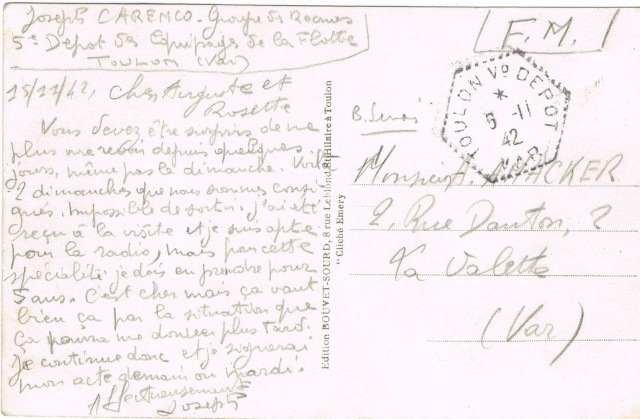 Joseph CARENCO - Groupe des Recrues
5e Dépôt des Equipages de la Flotte
TOULON (Var)
F. M.
15/11/42, Cher Auguste et
Rosette
Vous devez être surpris de ne
plus me revoir depuis quelques
jours, même pas le dimanche. Voilà
2 dimanches que nous sommes consi-
gnés. Impossible de sortir. J'ai été
reçu à la visite et je suis apte
pour la radio, mais pour cette
spécialité je dois en prendre pour
5 ans. C'est cher mais ça vaut
bien ça par la situation que
ça pourra me donner plus tard.
Je continue donc et je signerai
mon acte demain ou mardi.
Affectueusement
Joseph
Edition BOUVET-SOURD, 8 rue Leblond St-Hilaire à Toulon
"Cliché Emery"
TOULON Vº DEPOT
*
5 -11
42
VAR
Monsieur
2, Rue Danton, 2
La Valette
(Var)